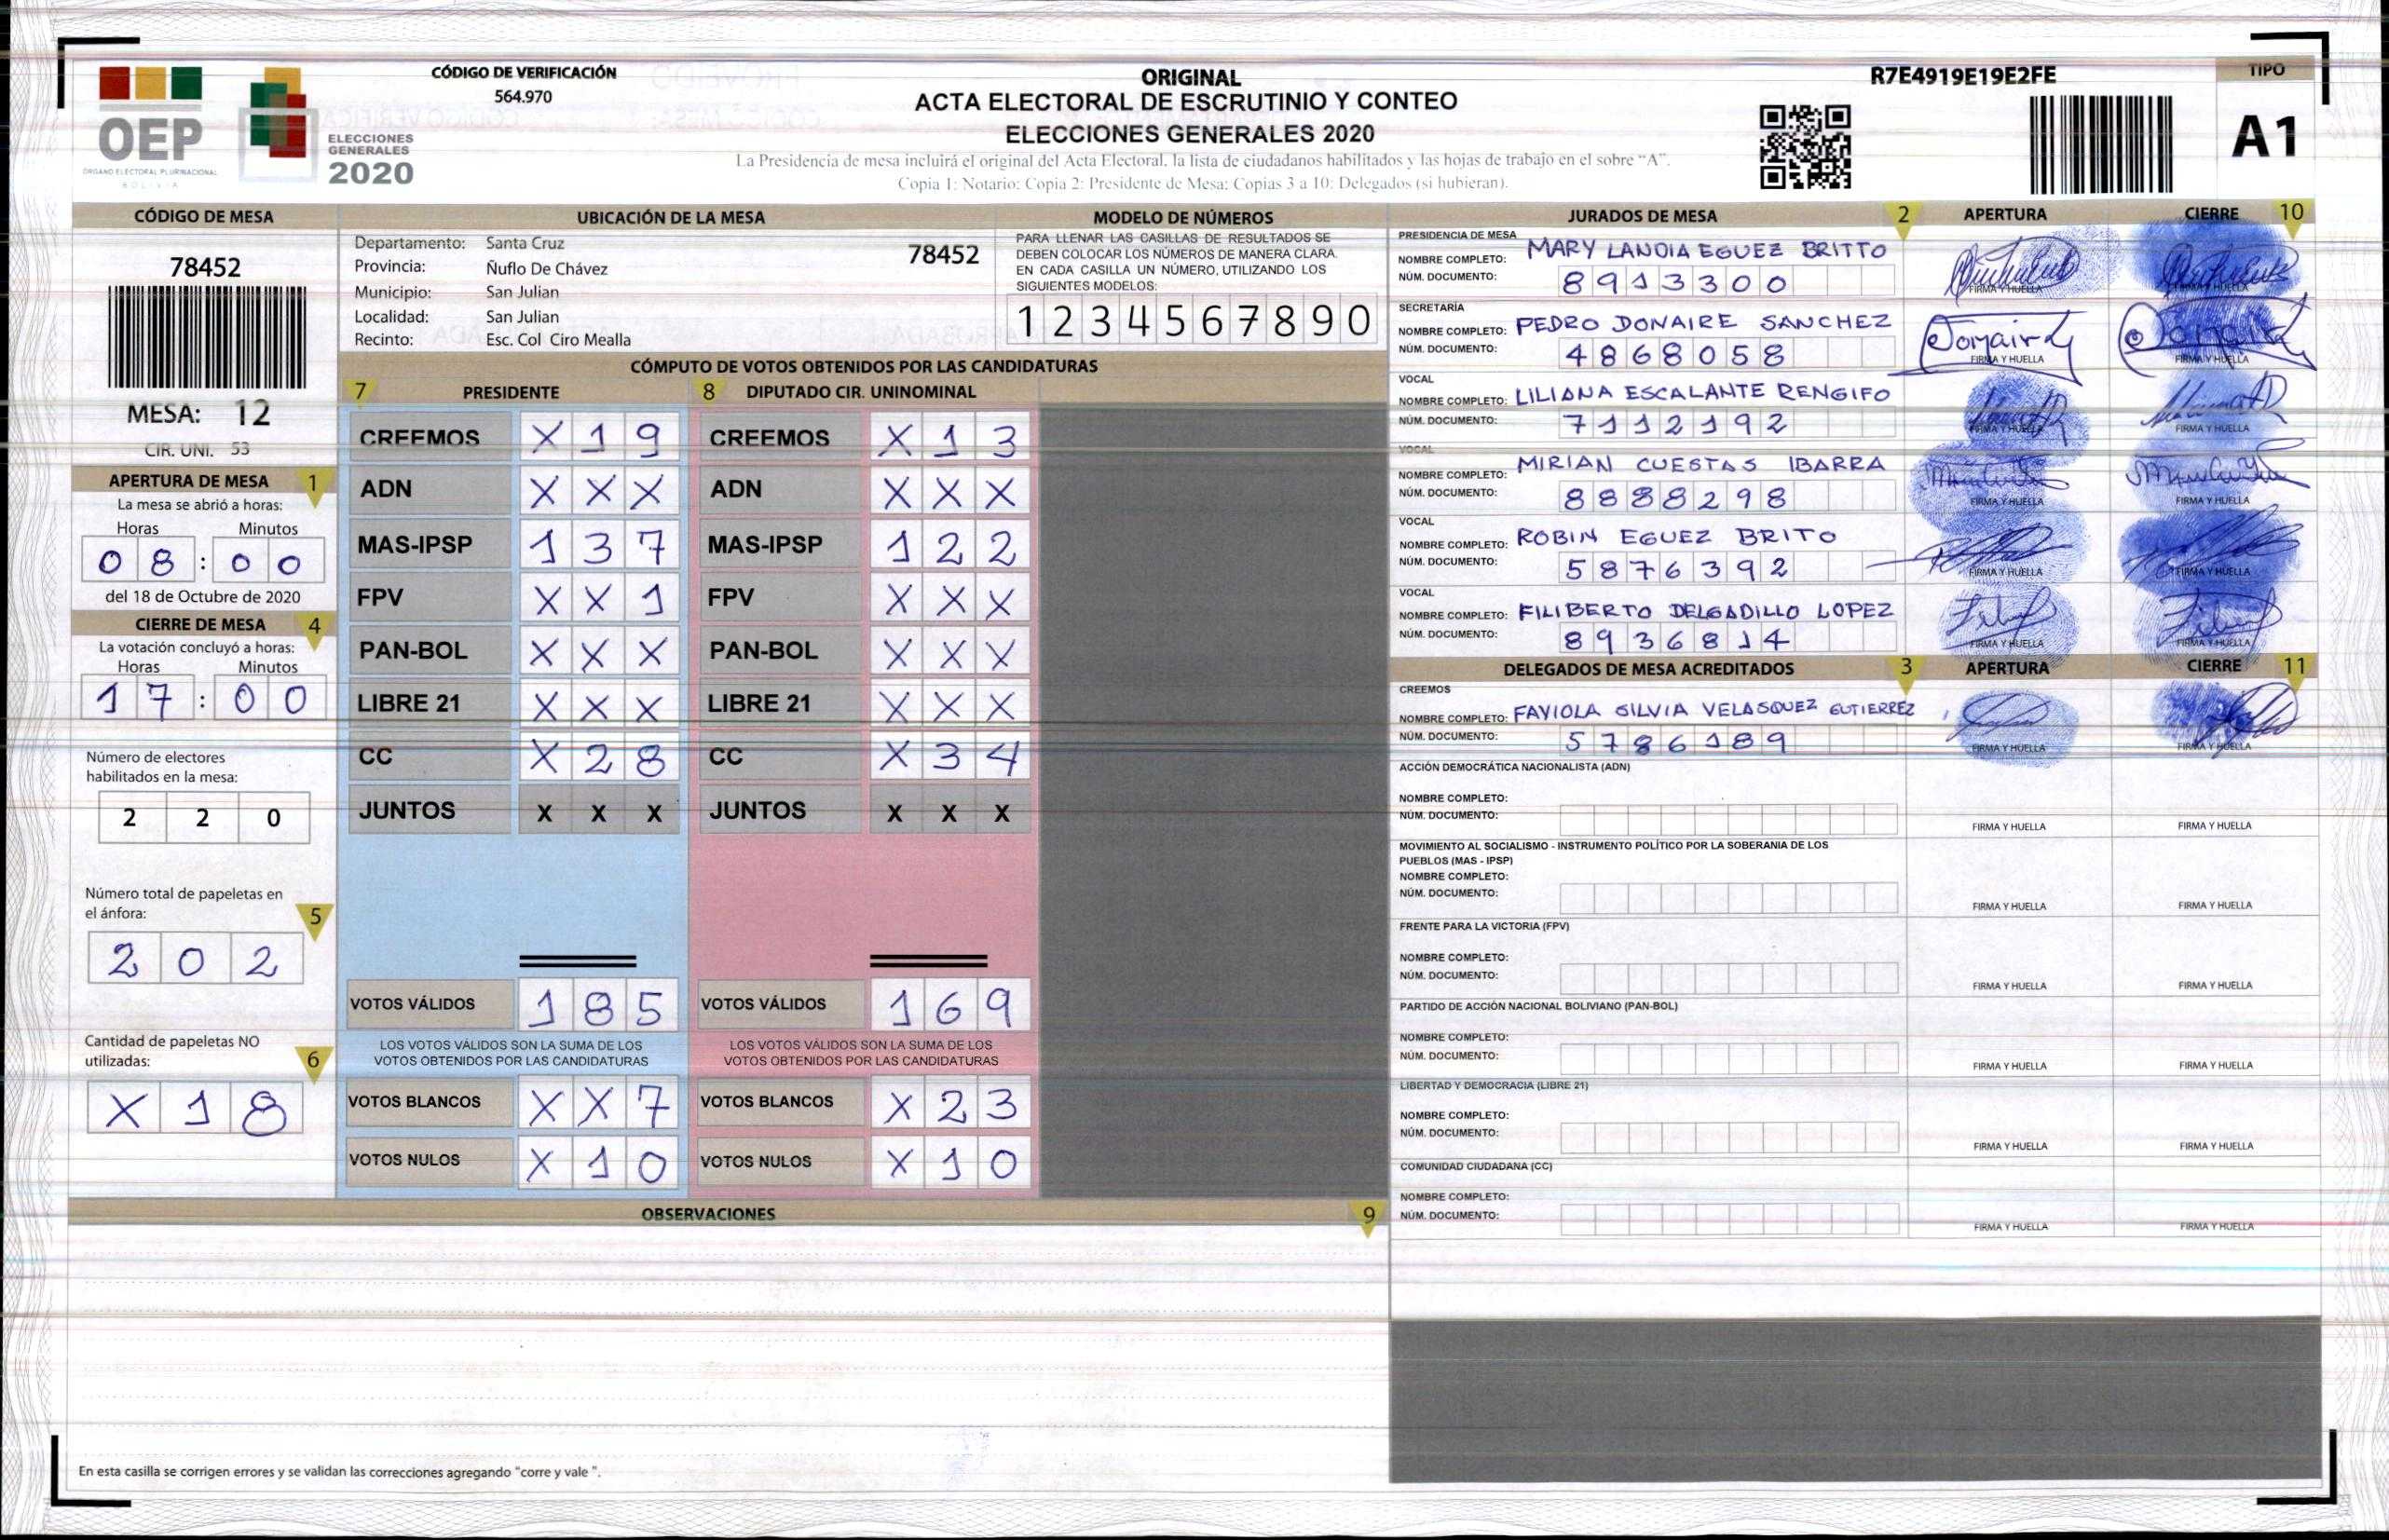 OEP
ÓRGANO ELECTORAL PLURINACIONAL
BOLIVIA
ELECCIONES
GENERALES
2020
CÓDIGO DE VERIFICACIÓN
564.970
ORIGINAL
ACTA ELECTORAL DE ESCRUTINIO Y CONTEO
ELECCIONES GENERALES 2020
La Presidencia de mesa incluirá el original del Acta Electoral, la lista de ciudadanos habilitados y las hojas de trabajo en el sobre “A”.
Copia 1: Notario; Copia 2: Presidente de Mesa; Copias 3 a 10: Delegados (si hubieran).
R7E4919E19E2FE
TIPO
A1
CÓDIGO DE MESA
78452
MESA: 12
CIR. UNI. 53
APERTURA DE MESA 1
La mesa se abrió a horas:
Horas Minutos
0 8 : 0 0
del 18 de Octubre de 2020
CIERRE DE MESA 4
La votación concluyó a horas:
Horas Minutos
1 7 : 0 0
Número de electores
habilitados en la mesa:
2 2 0
Número total de papeletas en
el ánfora:
5
2 0 2
Cantidad de papeletas NO
utilizadas:
6
X 1 8
UBICACIÓN DE LA MESA
Departamento: Santa Cruz
78452
Provincia: Ñuflo De Chávez
Municipio: San Julian
Localidad: San Julian
Recinto: Esc. Col Ciro Mealla
MODELO DE NÚMEROS
PARA LLENAR LAS CASILLAS DE RESULTADOS SE
DEBEN COLOCAR LOS NÚMEROS DE MANERA CLARA.
EN CADA CASILLA UN NÚMERO, UTILIZANDO LOS
SIGUIENTES MODELOS:
1 2 3 4 5 6 7 8 9 0
CÓMPUTO DE VOTOS OBTENIDOS POR LAS CANDIDATURAS
7 PRESIDENTE 8 DIPUTADO CIR. UNINOMINAL
CREEMOS X 1 9 CREEMOS X 1 3
ADN X X X ADN X X X
MAS-IPSP 1 3 7 MAS-IPSP 1 2 2
FPV X X 1 FPV X X X
PAN-BOL X X X PAN-BOL X X X
LIBRE 21 X X X LIBRE 21 X X X
CC X 2 8 CC X 3 4
JUNTOS X X X JUNTOS X X X
VOTOS VÁLIDOS 1 8 5 VOTOS VÁLIDOS 1 6 9
LOS VOTOS VÁLIDOS SON LA SUMA DE LOS LOS VOTOS VÁLIDOS SON LA SUMA DE LOS
VOTOS OBTENIDOS POR LAS CANDIDATURAS VOTOS OBTENIDOS POR LAS CANDIDATURAS
VOTOS BLANCOS X X 7 VOTOS BLANCOS X 2 3
VOTOS NULOS X 1 0 VOTOS NULOS X 1 0
OBSERVACIONES 9
En esta casilla se corrigen errores y se validan las correcciones agregando "corre y vale ".
JURADOS DE MESA 2 APERTURA CIERRE 10
PRESIDENCIA DE MESA
NOMBRE COMPLETO: MARY LANDIA EGUEZ BRITTO
NÚM. DOCUMENTO: 8 9 1 3 3 0 0
FIRMA Y HUELLA FIRMA Y HUELLA
SECRETARÍA
NOMBRE COMPLETO: PEDRO DONAIRE SANCHEZ
NÚM. DOCUMENTO: 4 8 6 8 0 5 8
FIRMA Y HUELLA FIRMA Y HUELLA
VOCAL
NOMBRE COMPLETO: LILIANA ESCALANTE RENGIFO
NÚM. DOCUMENTO: 7 1 1 2 1 9 2
FIRMA Y HUELLA FIRMA Y HUELLA
VOCAL
NOMBRE COMPLETO: MIRIAN CUESTAS IBARRA
NÚM. DOCUMENTO: 8 8 8 8 2 9 8
FIRMA Y HUELLA FIRMA Y HUELLA
VOCAL
NOMBRE COMPLETO: ROBIN EGUEZ BRITO
NÚM. DOCUMENTO: 5 8 7 6 3 9 2
FIRMA Y HUELLA FIRMA Y HUELLA
VOCAL
NOMBRE COMPLETO: FILIBERTO DELGADILLO LOPEZ
NÚM. DOCUMENTO: 8 9 3 6 8 1 4
FIRMA Y HUELLA FIRMA Y HUELLA
DELEGADOS DE MESA ACREDITADOS 3 APERTURA CIERRE 11
CREEMOS
NOMBRE COMPLETO: FAVIOLA SILVIA VELASQUEZ GUTIERREZ
NÚM. DOCUMENTO: 5 7 8 6 1 8 9
FIRMA Y HUELLA FIRMA Y HUELLA
ACCIÓN DEMOCRÁTICA NACIONALISTA (ADN)
NOMBRE COMPLETO:
NÚM. DOCUMENTO:
FIRMA Y HUELLA FIRMA Y HUELLA
MOVIMIENTO AL SOCIALISMO - INSTRUMENTO POLÍTICO POR LA SOBERANIA DE LOS
PUEBLOS (MAS - IPSP)
NOMBRE COMPLETO:
NÚM. DOCUMENTO:
FIRMA Y HUELLA FIRMA Y HUELLA
FRENTE PARA LA VICTORIA (FPV)
NOMBRE COMPLETO:
NÚM. DOCUMENTO:
FIRMA Y HUELLA FIRMA Y HUELLA
PARTIDO DE ACCIÓN NACIONAL BOLIVIANO (PAN-BOL)
NOMBRE COMPLETO:
NÚM. DOCUMENTO:
FIRMA Y HUELLA FIRMA Y HUELLA
LIBERTAD Y DEMOCRACIA (LIBRE 21)
NOMBRE COMPLETO:
NÚM. DOCUMENTO:
FIRMA Y HUELLA FIRMA Y HUELLA
COMUNIDAD CIUDADANA (CC)
NOMBRE COMPLETO:
NÚM. DOCUMENTO:
FIRMA Y HUELLA FIRMA Y HUELLA